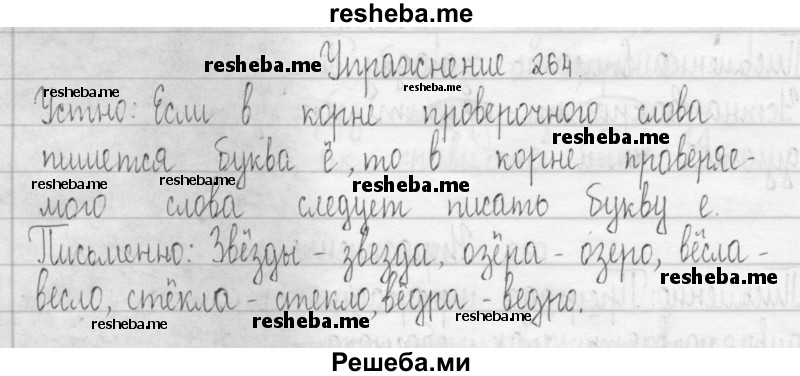 resheba.me
Упражнение 264
resheba.me
resheba.me
resheba.me
Устно: Если в корне проверочного слова
resheba.me
пишется буква ё, то в корне проверяе-
resheba.me
resheba.me
мого слова следует писать букву е.
Письменно: Звёзды - звезда, озёра - озеро, вёсла -
resheba.me
весло, стёкла - стекло, вёдра - ведро.
resheba.me
resheba.me
resheba.me
Решеба.ми